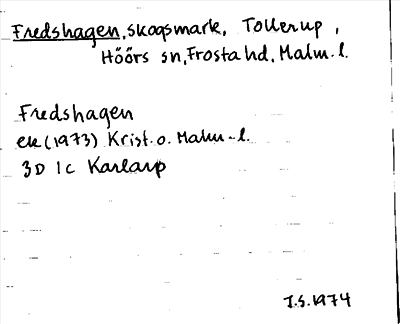 Fredshagen, skogsmark, Tollerup,
Höörs sn, Frosta hd, Malm.l.
Fredshagen
ek (1973) Krist. o. Malm-l.
3D 1c Karlarp
J.S. 1974